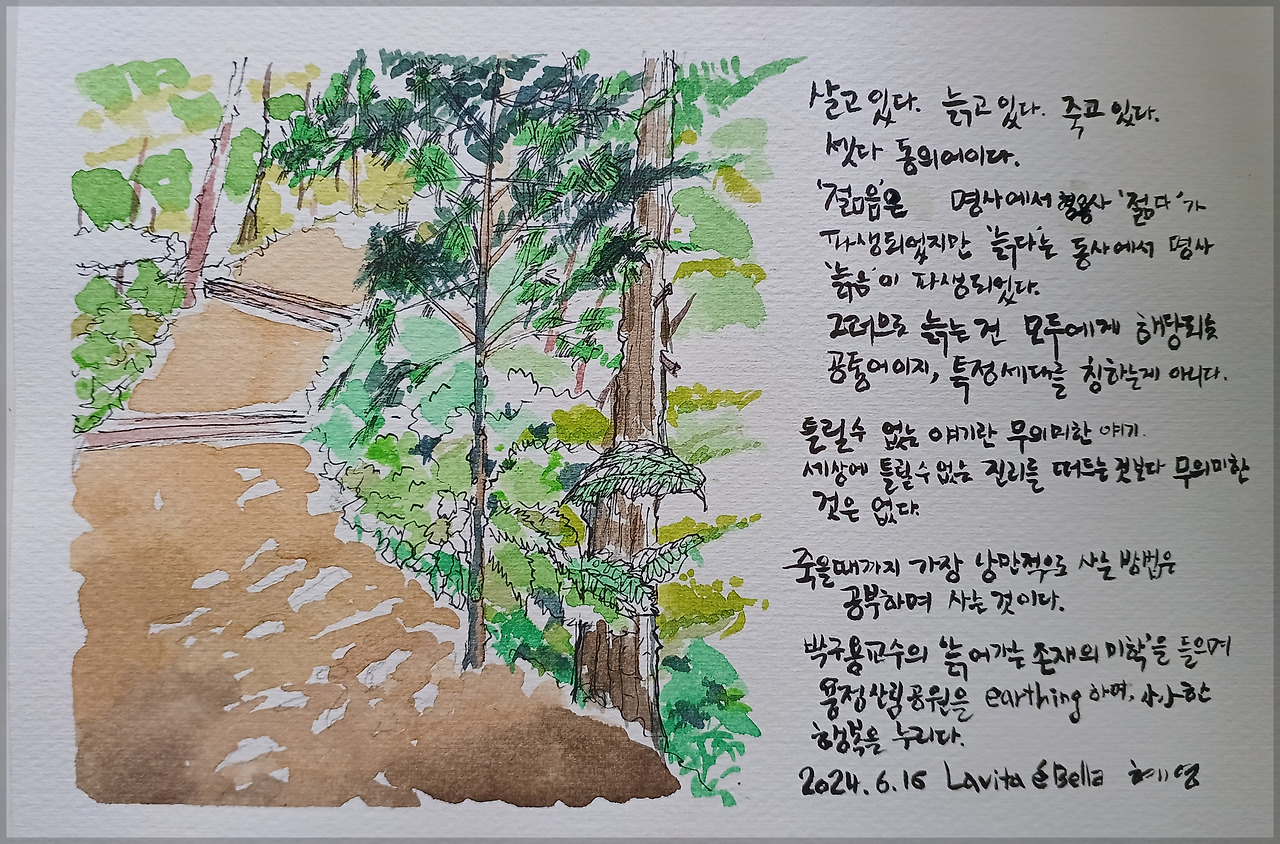 살고 있다. 늙고 있다. 죽고 있다.
셋다 동의어이다.
'젊음'은 명사에서 형용사 '젊다'가
파생되었지만 '늙다'는 동사에서 명사
'늙음'이 파생되었다.
그러므로 늙는 건 모두에게 해당되는
공통어이지, 특정세대를 칭하는게 아니다.
틀릴수 없는 얘기란 무의미한 얘기.
세상에 틀릴수 없는 진리를 떠드는 것보다 무의미한
것은 없다.
죽을때까지 가장 낭만적으로 사는 방법은
공부하며 사는 것이다.
박구용교수의 '늙어가는 존재의 미학'을 들으며
용정산림공원을 earthing 하며, 소소한
행복을 누리다.
2024.6.16 Lavita é Bella 혜영